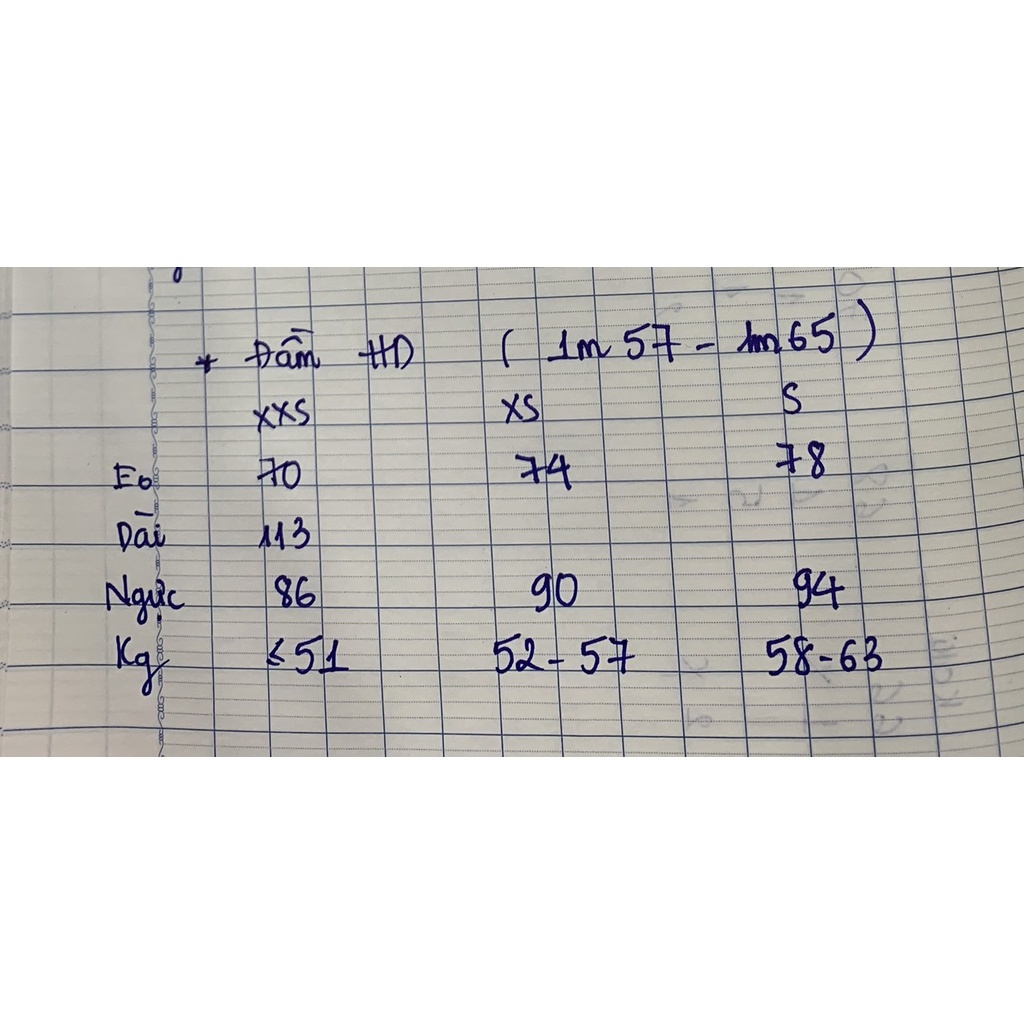 * Đầm HD ( 1m 57 - 1m 65 )
XXS XS S
Eo 70 74 78
Dài 113
Ngực 86 90 94
Kg ≤ 51 52 - 57 58 - 63